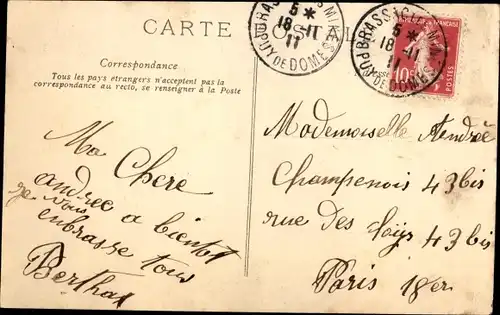 CARTE POSTALE
Correspondance
Tous les pays étrangers n'acceptent pas la
correspondance au recto, se renseigner à la Poste
BRASSAC-LES-MINES
5 *
18 - 11
11
PUY-DE-DOME
BRASSAC
5 *
18 - 11
11
PUY-DE-DOME
10
POSTES
Ma Chere
andree a bientot
je vous
enbrasse tous
Bertha
Mademoiselle Andrée
Champenois 43 bis
rue des 43 bis
Paris 18er